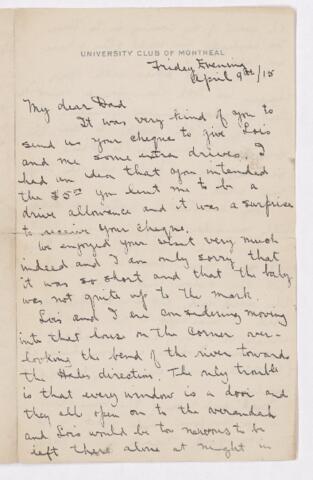 UNIVERSITY CLUB OF MONTREAL
Friday Evening
April 9th/15
My dear Dad
It was very kind of you to
send us your cheque to give Lois
and me some extra drives. I
had an idea that you intended
the $5.00 you lent me to be a
drive allowance and it was a surprise
to receive your cheque.
We enjoyed your visit very much
indeed and I am only sorry that
it was so short and that the baby
was not quite up to the mark.
Lois and I are considering moving
into that house on the corner over-
looking the bend of the river towards
the Hales direction. The only trouble
is that every window is a door and
they all open on to the verandah
and Lois would be too nervous to be
left there alone at night in